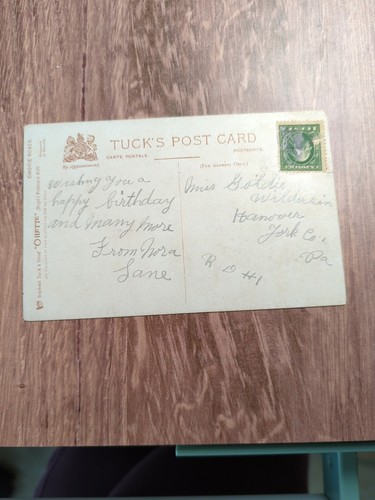 TUCK'S POST CARD
CARTE POSTALE. POSTKARTE.
By Appointment.
(For Address Only.)
Wishing you a
happy birthday
and many more
From Nora
Lane
Miss Goldie
Hanover
York Co.
Pa
R D #1
CHOICE ROSES.
"OILETTE"